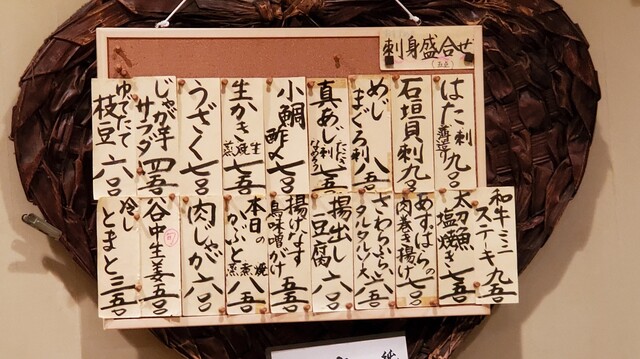 刺身盛合せ
はた刺 九〇
石垣貝刺 九〇
めじまぐろ刺 八五
真あじ 刺 たたき なめろう 七五
小鯛酢〆 七〇
生かき 生 蒸 七五
うざく 七〇
じゃが芋サラダ 四五
ゆでたて枝豆 六〇
和牛ミニステーキ 九五
太刀魚塩焼き 七五
あすぱらの肉巻き揚げ 七〇
さわらふらいタルタルソース 六五
揚出し豆腐 六〇
揚げなす鳥味噌がけ 五五
本日のかぶと 焼 煮 蒸 八五
肉じゃが 六〇
谷中生姜 五〇
冷しとまと 三五